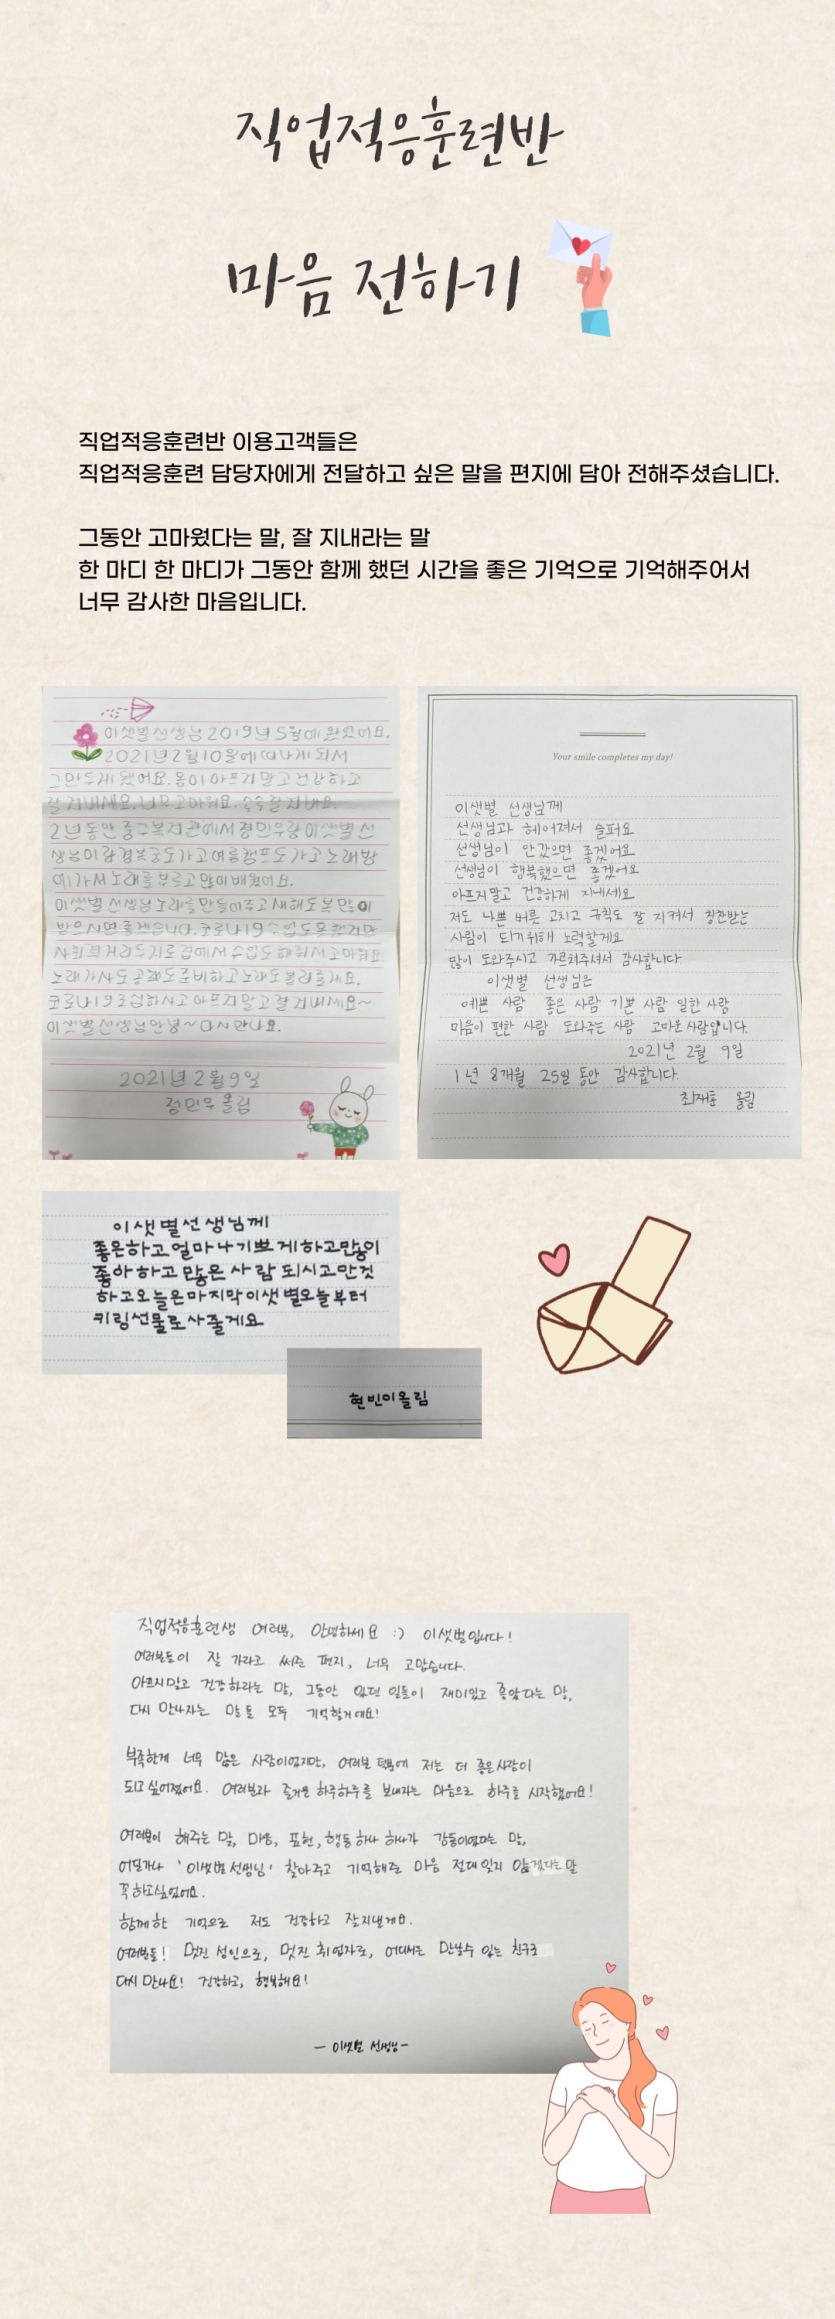 직업적응훈련반
마음 전하기
직업적응훈련반 이용고객들은
직업적응훈련 담당자에게 전달하고 싶은 말을 편지에 담아 전해주셨습니다.
그동안 고마웠다는 말, 잘 지내라는 말
한 마디 한 마디가 그동안 함께 했던 시간을 좋은 기억으로 기억해주어서
너무 감사한 마음입니다.
이샛별 선생님 2019년 5월에 왔었어요.
2021년 2월 10일에 떠나게 되서
그만두게 됐어요. 몸이 아프지 말고 건강하고
잘 지내세요. 너무 고마워요. 쑥쑥 잘 지내요.
2년동안 중구복지관에서 정민우랑 이샛별 선
생님이랑 경복궁도 가고 여름캠프도 가고 노래방
에 가서 노래를 부르고 많이 배웠어요.
이샛별 선생님 노래를 만들어주고 새해도 복 많이
받으시면 좋겠습니다. 코로나19 수업도 못했지만
사회적 거리두기로 집에서 수업도 해줘서 고마워요.
노래가사도 공책도 준비하고 노래도 불러줄게요.
코로나19 조심하시고 아프지 말고 잘 지내세요~
이샛별 선생님 안녕~ 다시 만나요.
2021년 2월 9일
정민우 올림
Your smile completes my day!
이샛별 선생님께
선생님과 헤어져서 슬퍼요
선생님이 안갔으면 좋겠어요
선생님이 행복했으면 좋겠어요
아프지말고 건강하게 지내세요
저도 나쁜 버릇 고치고 규칙도 잘 지켜서 칭찬받는
사람이 되기위해 노력할게요
많이 도와주시고 가르쳐주셔서 감사합니다
이샛별 선생님은
예쁜 사람 좋은 사람 기쁜 사람 일한 사람
마음이 편한 사람 도와주는 사람 고마운 사람입니다.
2021년 2월 9일
1년 8개월 25일 동안 감사합니다.
최재훈 올림
이샛별선생님께
좋은하고얼마나기쁘게하고많이
좋아하고 많은 사람 되시고만것
하고오늘은마지막이샛별오늘부터
키링선물로사줄게요
현빈이올림
직업적응훈련생 여러분, 안녕하세요 :) 이샛별입니다!
여러분들이 잘 가라고 써준 편지, 너무 고맙습니다.
아프지말고 건강하라는 말, 그동안 있던 일들이 재미있고 좋았다는 말,
다시 만나자는 말들 모두 기억할거예요!
부족한게 너무 많은 사람이었지만, 여러분 덕분에 저는 더 좋은사람이
되고 싶어졌어요. 여러분과 즐거운 하루하루를 보내자는 마음으로 하루를 시작했어요!
여러분이 해주는 말, 마음, 표현, 행동 하나 하나가 감동이었다는 말,
어딜가나 '이샛별 선생님' 찾아주고 기억해준 마음 절대 잊지 않겠다는 말
꼭 하고싶었어요.
함께한 기억으로 저도 건강하고 잘지낼게요.
여러분들! 멋진 성인으로, 멋진 취업자로, 어디서든 만날수 있는 친구로
다시 만나요! 건강하고, 행복해요!
- 이샛별 선생님 -